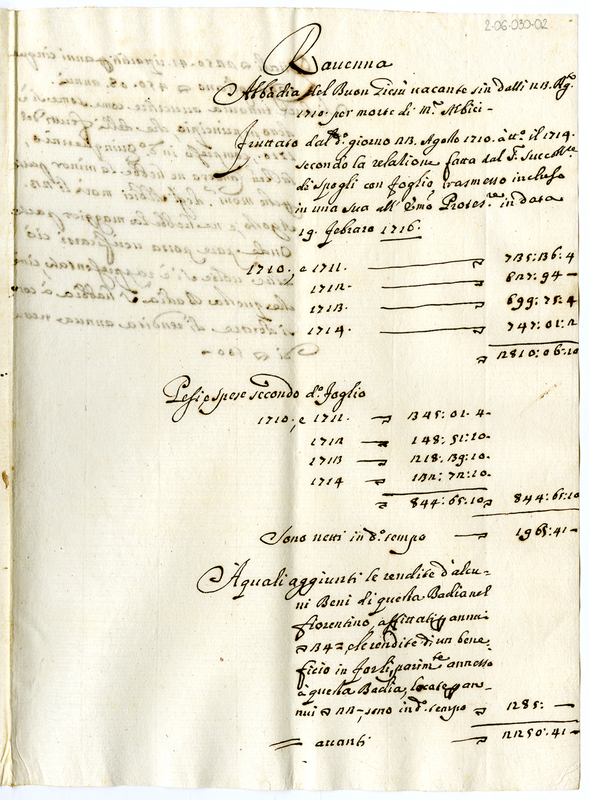 2-06-030-02
Ravenna
Abbadia del Buon Giesù vacante sin dalli 23. Ag.to
1710. per morte di m.r Albici -
Fruttato dal d.o giorno 23. Agosto 1710. à tt.o il 1714.
secondo la relatione fatta dal S. Succoll.re
di Spogli con foglio trasmesso incluso
in una sua all' Em̃o Protet.re in data
19. febraro 1716.
1710. e 1711. ——— ▽ 735: 36: 4
1712. ——— ▽ 627: 94 —
1713. ——— ▽ 699: 75: 4
1714. ——— ▽ 747: 01: 2
▽ 2810: 06: 10
Pesi e spese secondo d.o foglio
1710. e 1711. — ▽ 345: 01: 4 -
1712 — ▽ 148: 51: 10 -
1713 — ▽ 218: 39: 10 -
1714 — ▽ 132: 72: 10 -
▽ 844: 65: 10 ▽ 844: 65: 10
Sono netti in d.o tempo — ▽ 1965: 41 —
A quali aggiunti le rendite d'alcu=
ni Beni di questa Badia nel
fiorentino, affittati p annui
▽ 34 =, e le rendite di un bene=
ficio in Forlì, parim.te annesso
à questa Badia, locate p an=
nui ▽ 23 -, sono in d.o tempo ▽ 285: —
= avanti — ▽ 2250: 41 —